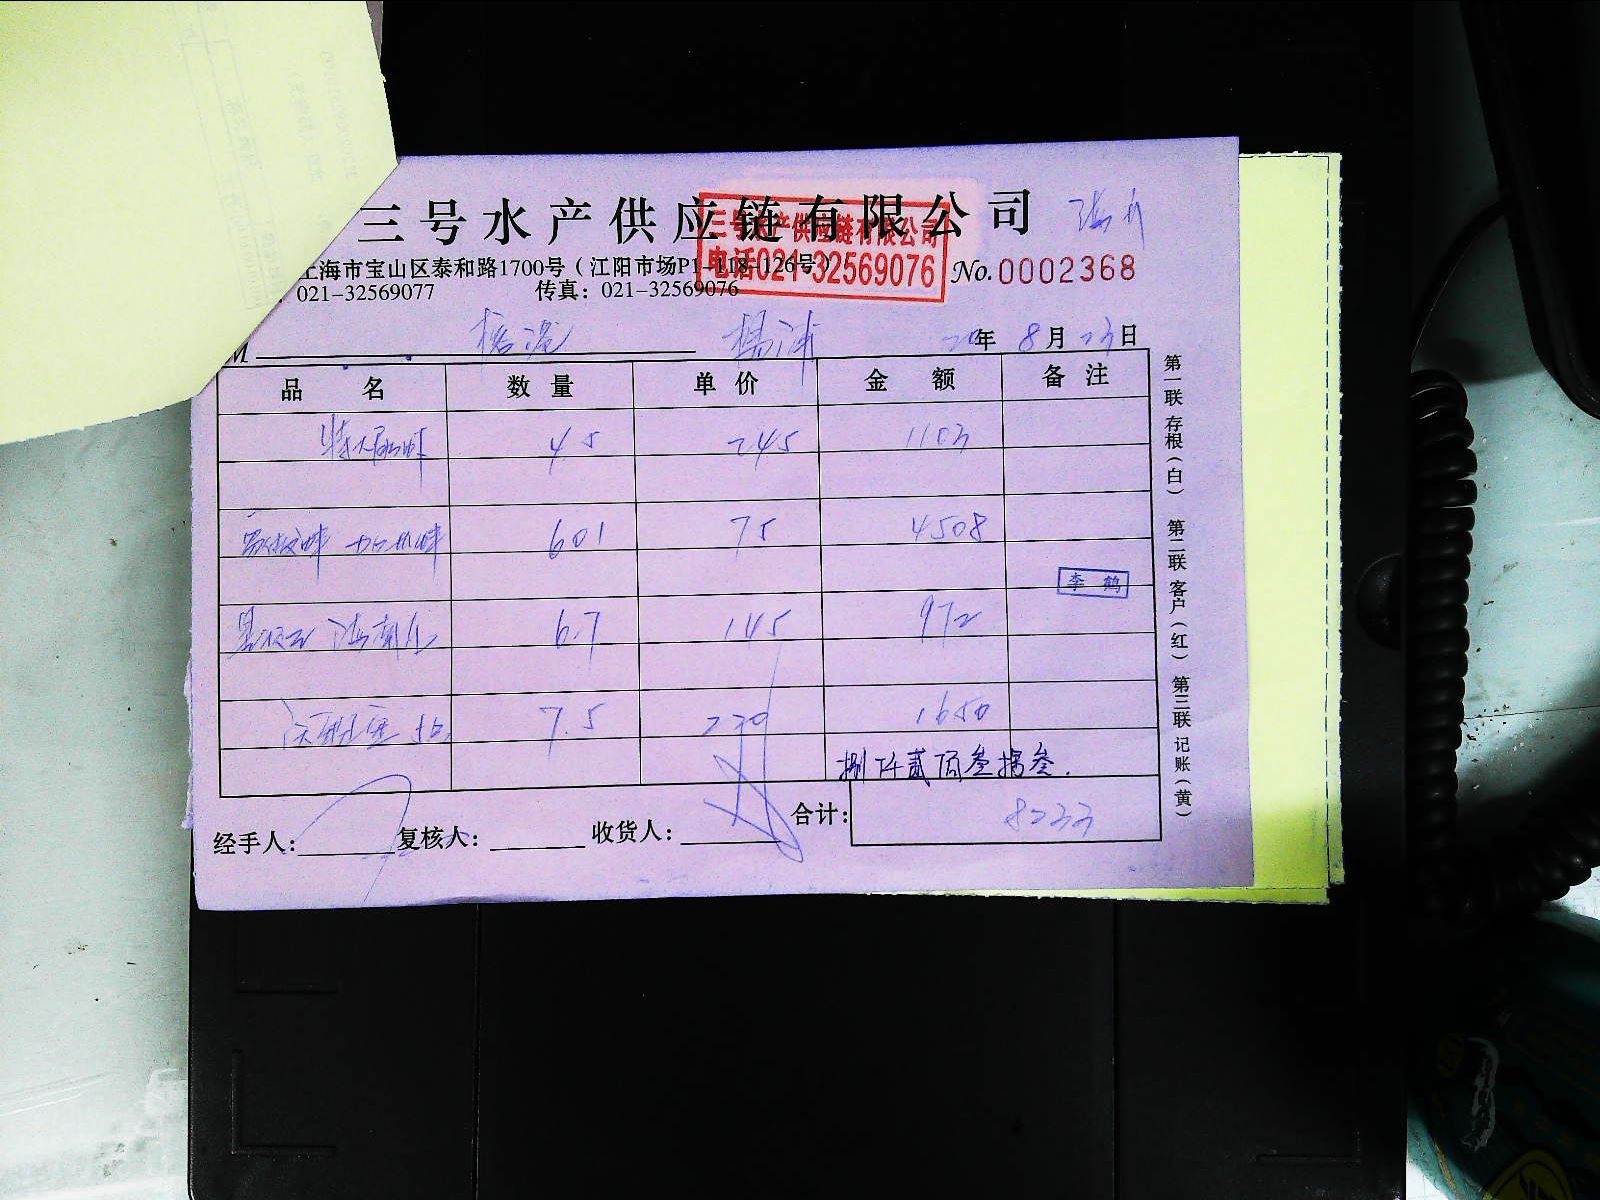 三号水产供应链有限公司
三号水产供应链有限公司
电话021-32569076
上海市宝山区泰和路1700号（江阳市场P1-118-126号）
No.0002368
021-32569077 传真：021-32569076
M 杨浦 20年 8月 23日
品名 数量 单价 金额 备注
4.5 245 1103
601 75 4508
李鹤
6.7 145 972
7.5 220 1650
捌仟贰佰叁拾叁.
经手人： 复核人： 收货人： 合计： 8233
第一联 存根（白） 第二联 客户（红） 第三联 记账（黄）